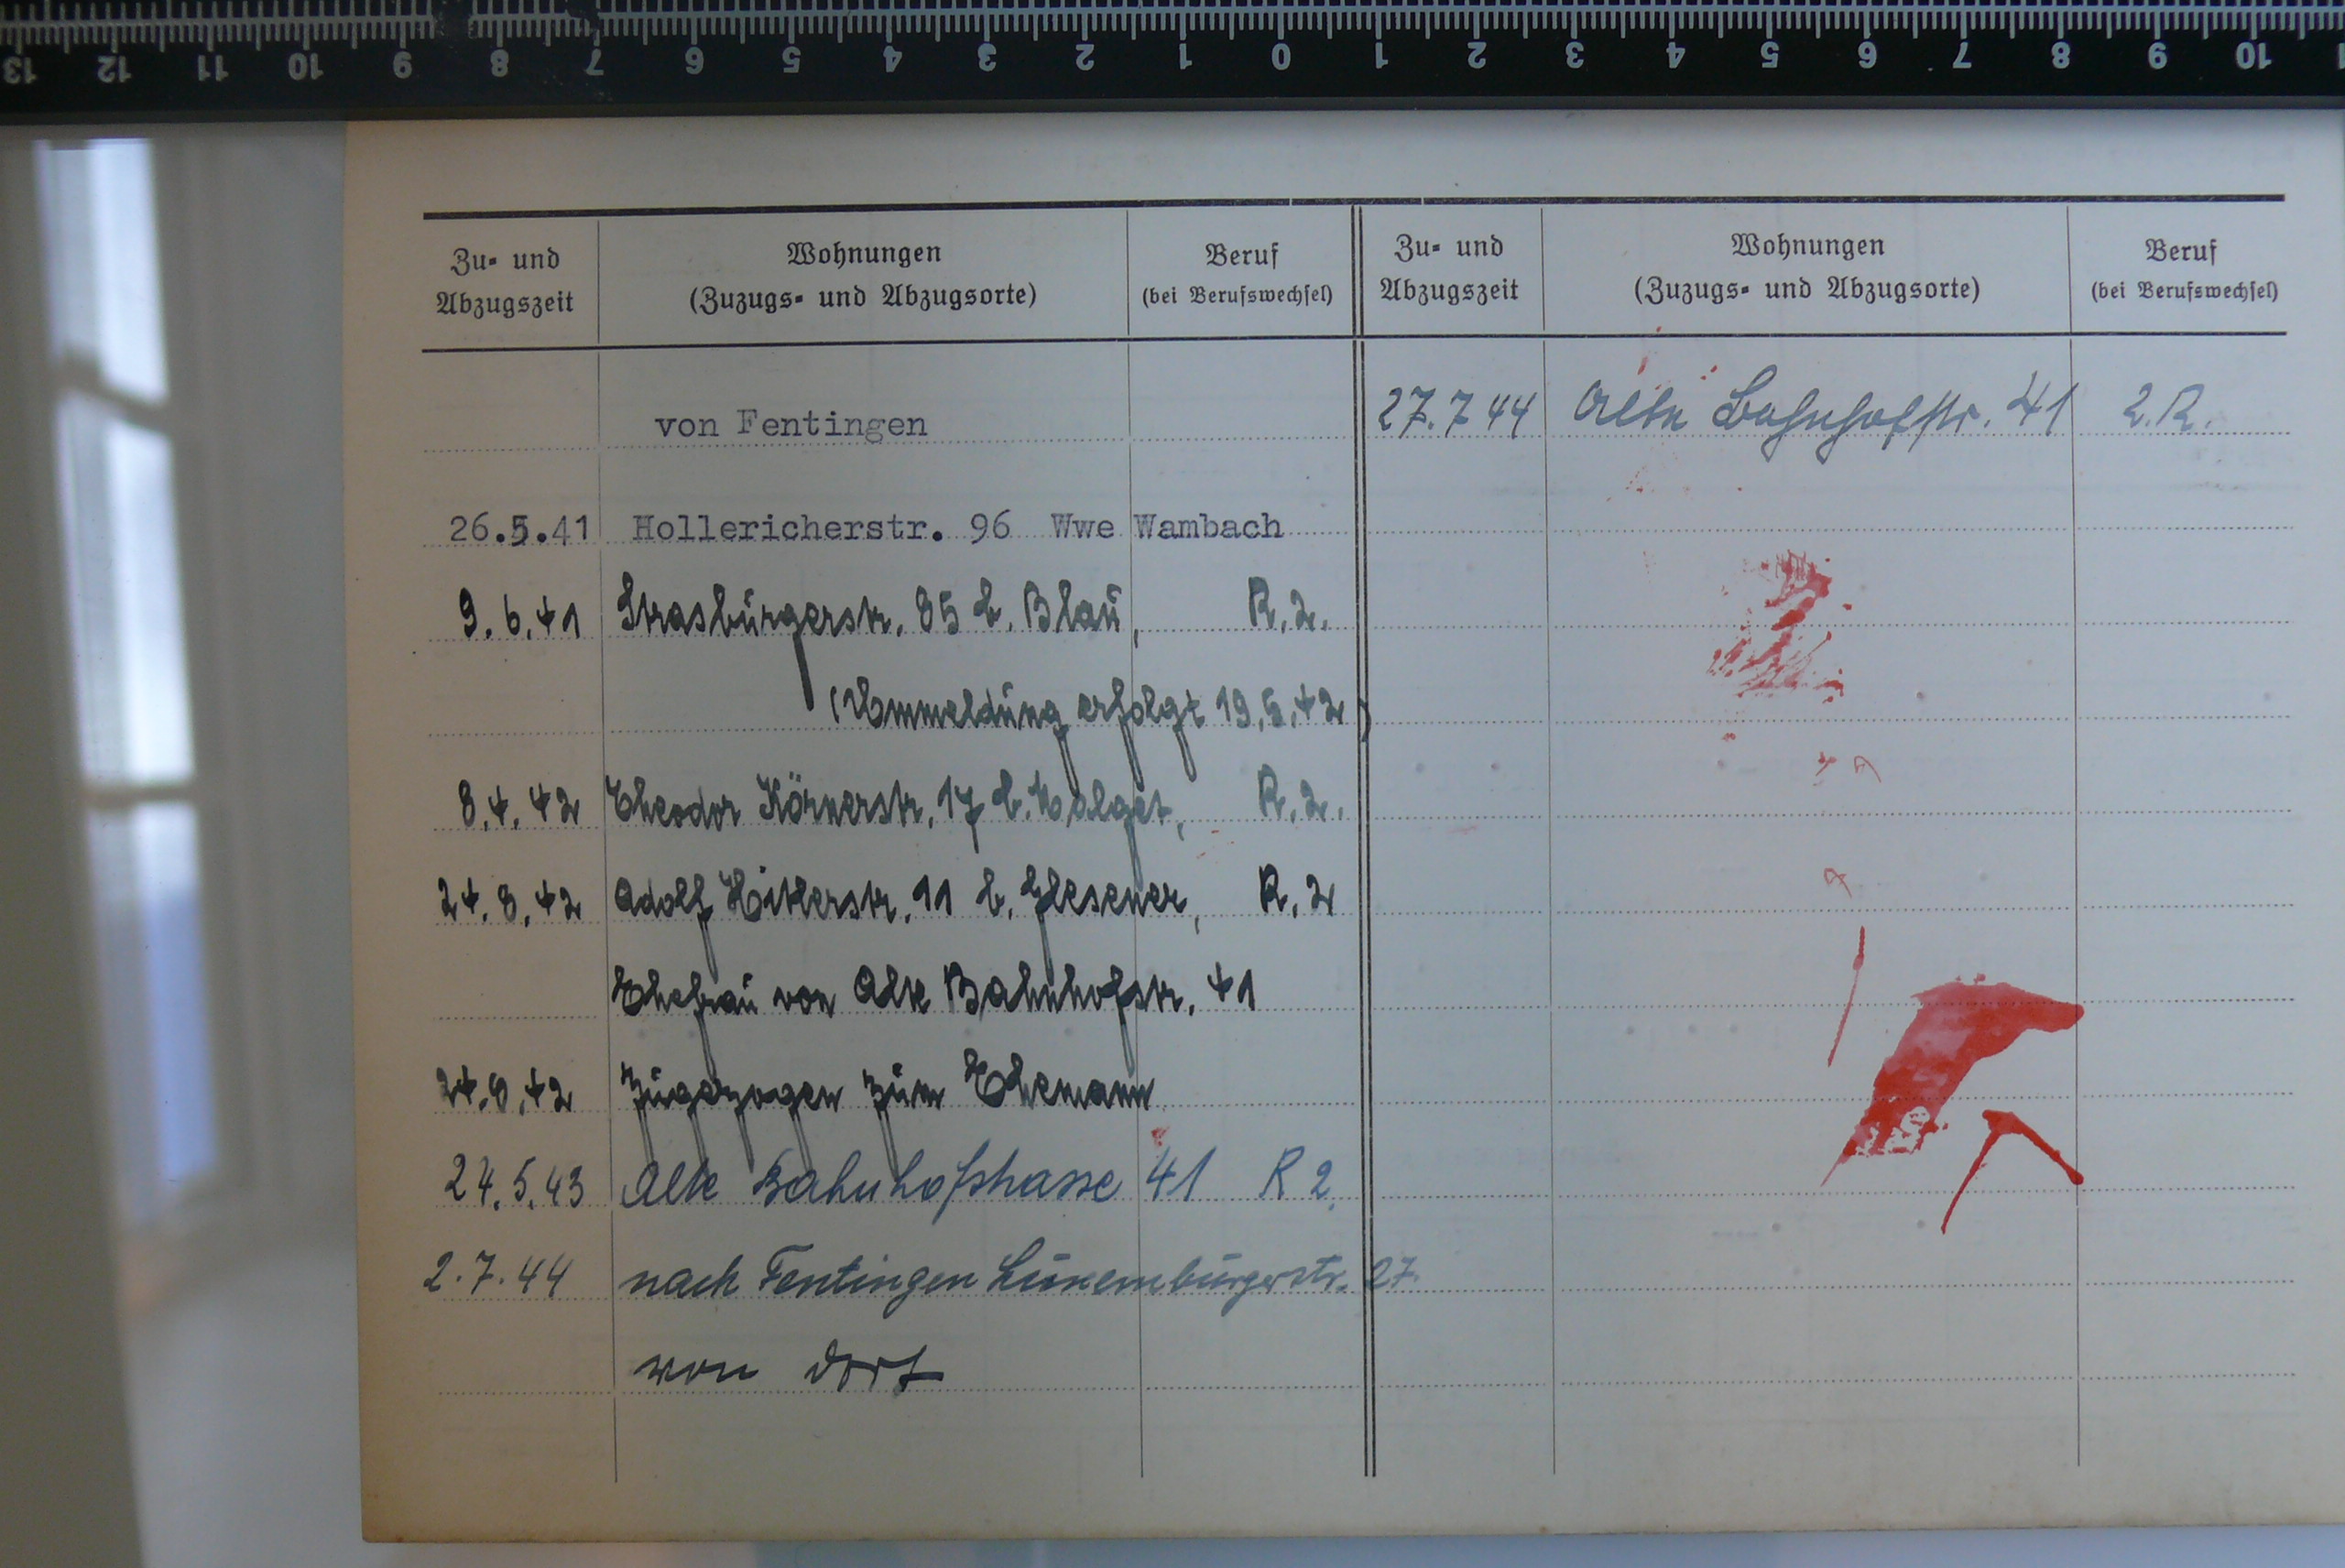 13 12 11 10 9 8 7 6 5 4 3 2 1 0 1 2 3 4 5 6 7 8 9 10
Zu- und Abzugszeit
Wohnungen (Zuzugs- und Abzugsorte)
Beruf (bei Berufswechsel)
von Fentingen
26.5.41 Hollericherstr. 96 Wwe Wambach
9.6.41 Strasburgerstr. 85 b. Blau, R.2.
(Ummeldung erfolgt 19.5.42)
8.4.42 Theodor Körnerstr. 17 b. R.2.
24.8.42 Adolf Hitlerstr. 11 b. Glesener, R.2
Ehefrau von Alte Bahnhofstr. 41
24.8.42 zugezogen zum Ehemann
24.5.43 Alte Bahnhofstrasse 41 R 2.
2.7.44 nach Fentingen Luxemburgerstr. 27.
von dort
Zu- und Abzugszeit
Wohnungen (Zuzugs- und Abzugsorte)
Beruf (bei Berufswechsel)
27.7 44 Alte Bahnhofstr. 41 2.R.